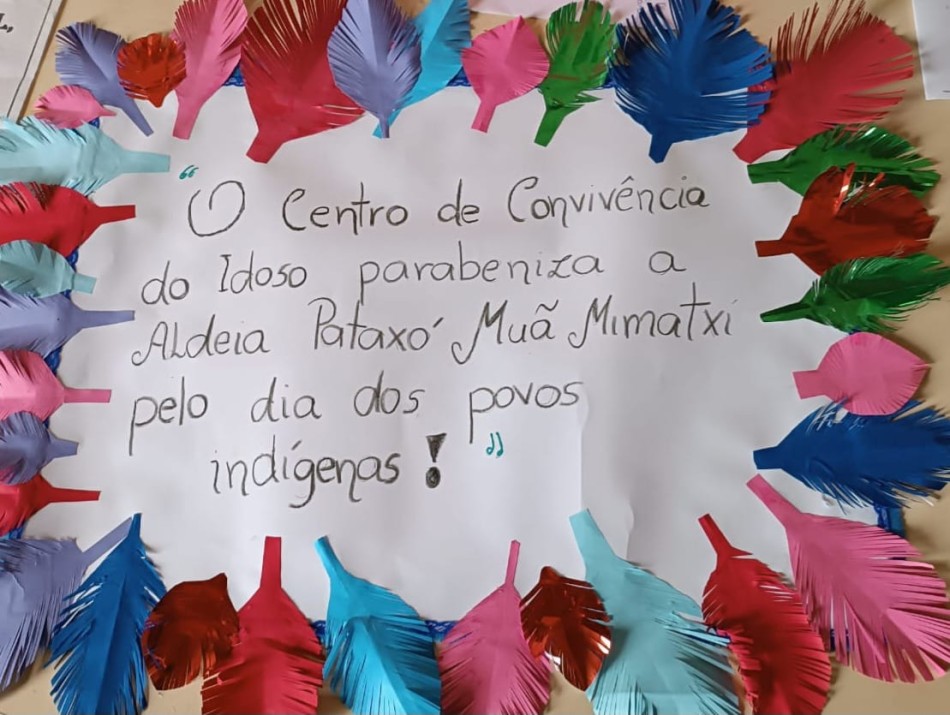 “O Centro de Convivência
do Idoso parabeniza a
Aldeia Pataxó Muã Mimatxi
pelo dia dos povos
indígenas!”